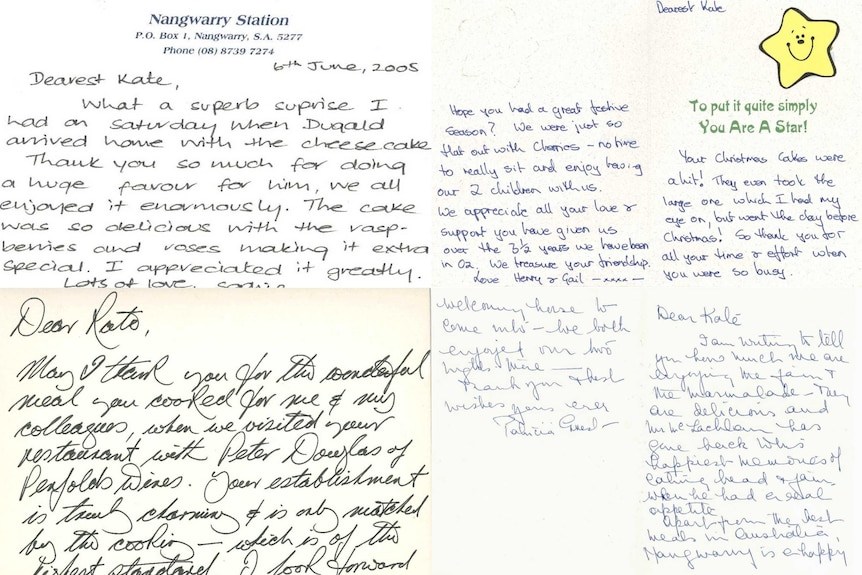 Nangwarry Station
P.O. Box 1, Nangwarry, S.A. 5277
Phone (08) 8739 7274
6th June, 2005
Dearest Kate,
What a superb suprise I
had on Saturday when Dugald
arrived home with the cheesecake
Thank you so much for doing
a huge favour for him, we all
enjoyed it enormously. The cake
was so delicious with the rasp-
berries and roses making it extra
special. I appreciated it greatly.
Lots of love,
Hope you had a great festive
season? We were just so
flat out with Cherries - no time
to really sit and enjoy having
our 2 children with us.
We appreciate all your love &
support you have given us
over the 3½ years we have been
in Oz. We treasure your friendship.
Love Henry & Gail - xxxx -
Dearest Kate
To put it quite simply
You Are A Star!
Your Christmas Cakes were
a hit! They even took the
large one which I had my
eye on, but went the day before
Christmas! So thank you for
all your time & effort when
you were so busy.
Dear Kate,
May I thank you for the wonderful
meal you cooked for me & my
colleagues, when we visited your
restaurant with Peter Douglas of
Penfolds Wines. Your establishment
is truly charming & is only matched
by the cooking - which is of the
highest standard. I look forward
welcoming house to
come into - we both
enjoyed our two
nights there
Thank you & best
wishes yours ever
Patricia
Dear Kate
I am writing to tell
you how much we are
enjoying the jam &
the marmalade - They
are delicious and
Mr McLachlan has
gone back to his
happiest memories of
eating bread & jam
when he had a real
appetite
Apart from the best
meals in Australia,
Nangwarry is a happy